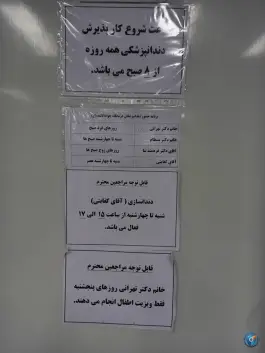 ساعت شروع کار پذیرش
دندانپزشکی همه روزه
از ۸ صبح می باشد.
خانم دکتر تهرانی
روزهای فرد صبح ها
خانم دکتر
شنبه تا چهارشنبه صبح ها
آقای دکتر
روزهای زوج صبح ها
آقای کفایتی
شنبه تا چهارشنبه عصر
قابل توجه مراجعین محترم
دندانسازی ( آقای کفایتی)
شنبه تا چهارشنبه از ساعت ۱۵ الی ۱۷
فعال می باشد.
قابل توجه مراجعین محترم
خانم دکتر تهرانی روزهای پنجشنبه
فقط ویزیت اطفال انجام می دهند.